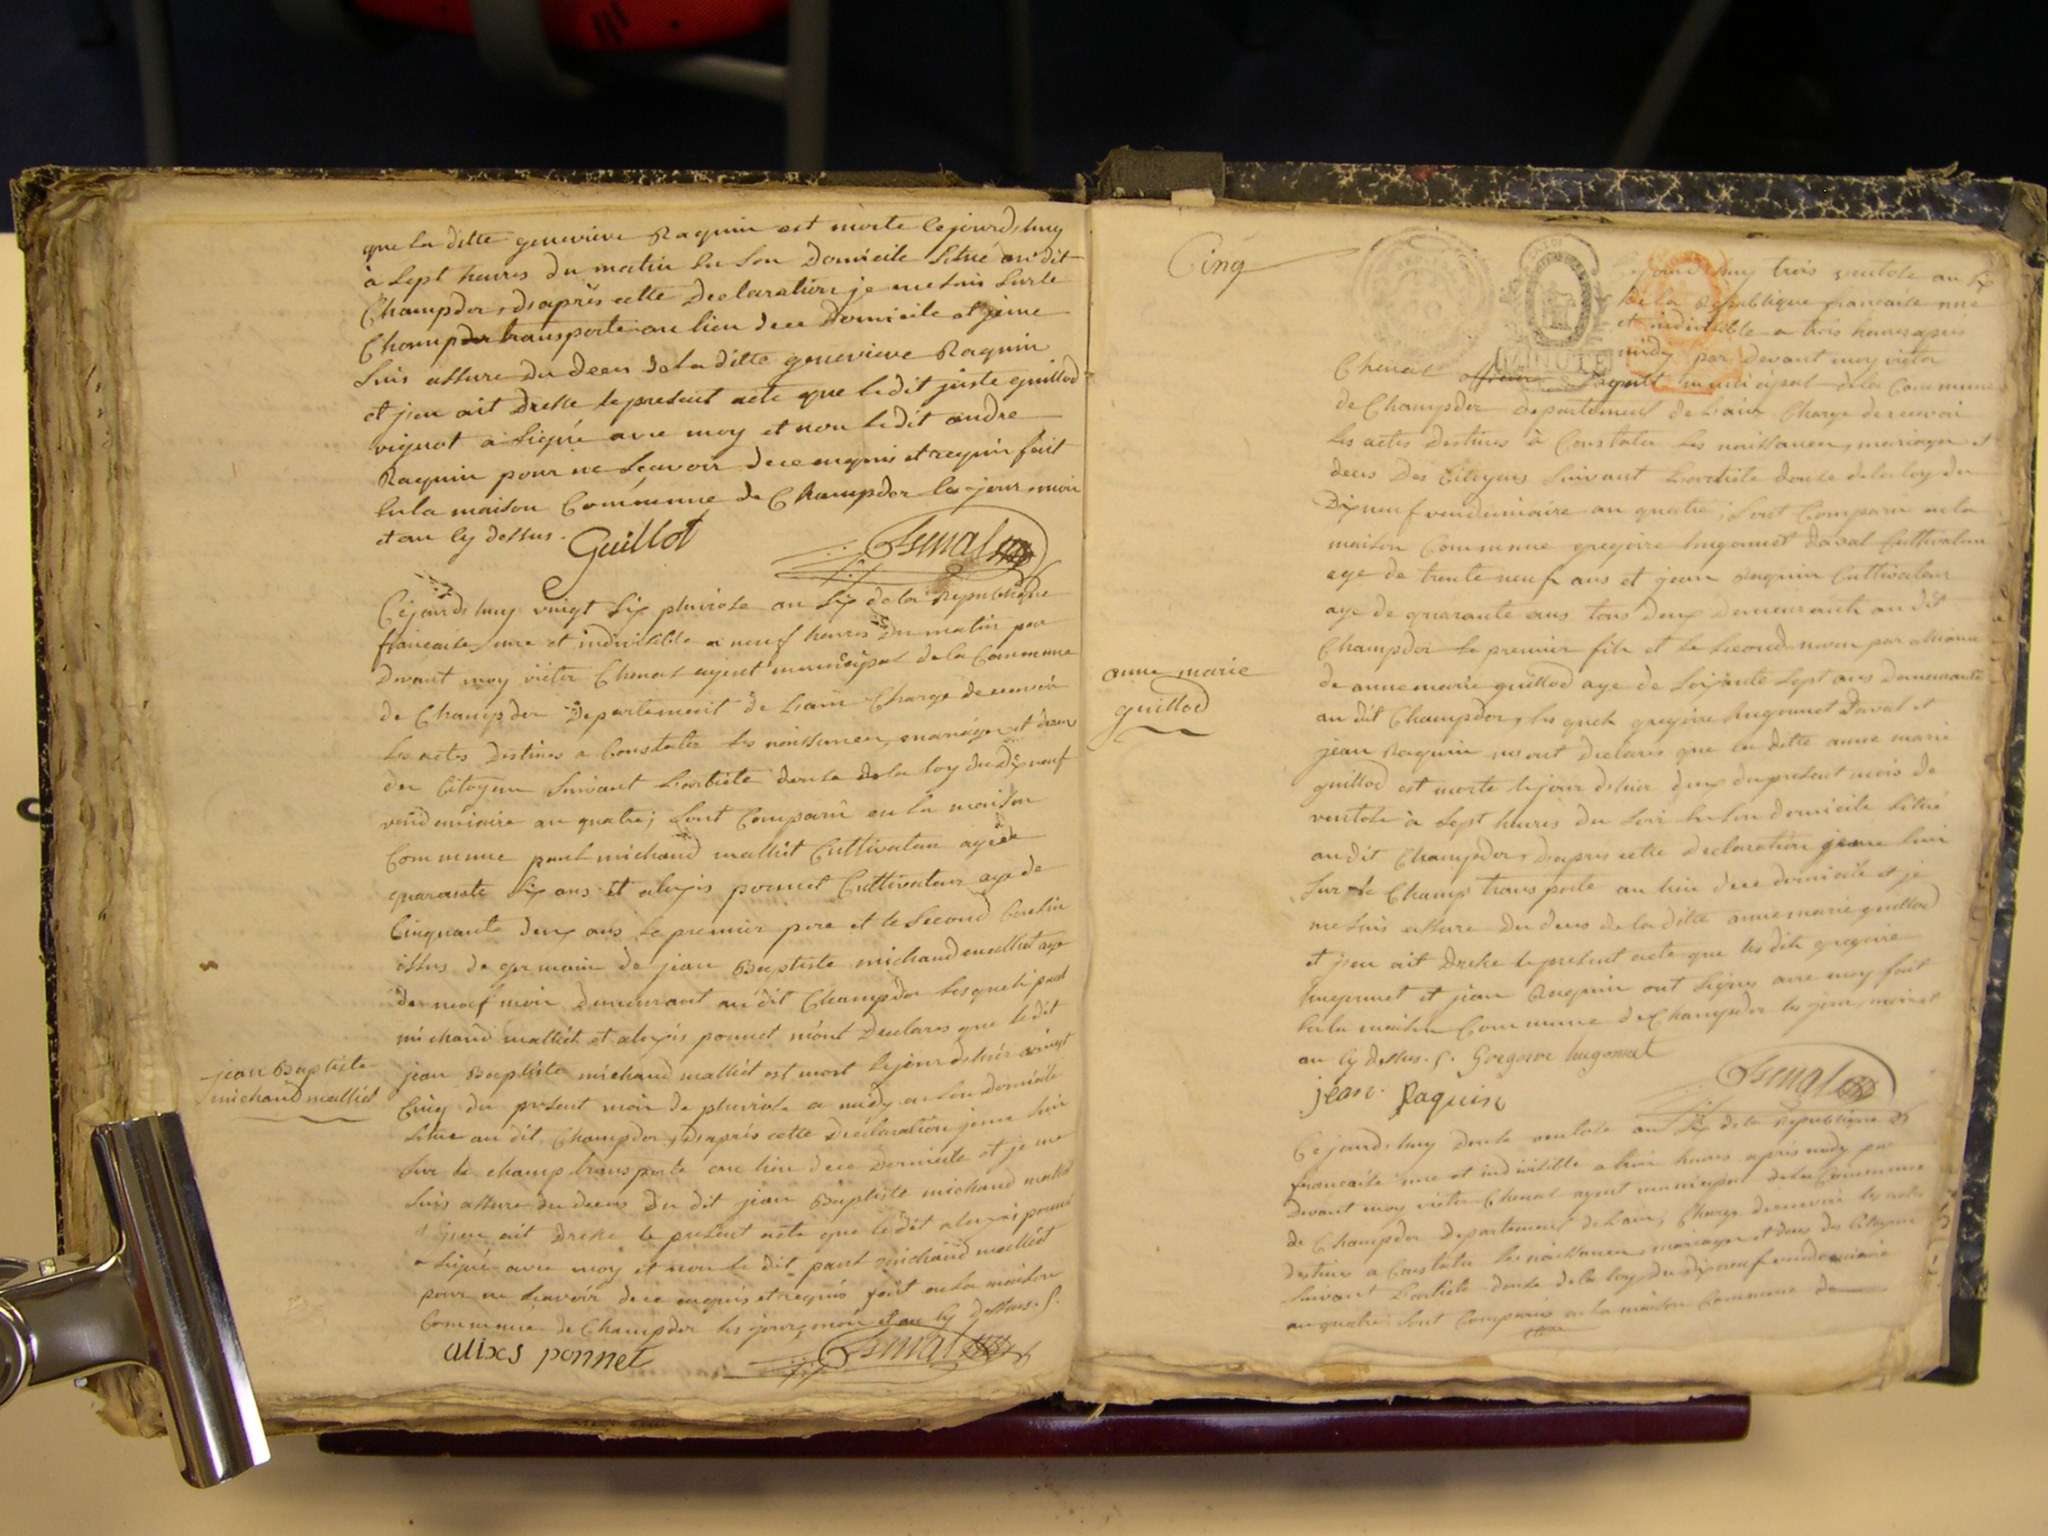 que la ditte genevieve Raquin est morte cejourdshuy
à sept heures du matin en son domicile situé au dit
Champdor, d'après cette declaration je me suis sur le
Champ transporté au lieu de ce domicile et je me
suis assure du deces de la ditte genevieve Raquin
et j'en ait dresse le present acte que le dit juste guillod
vignot a signé avec moy et non le dit andre
Raquin pour ne sçavoir de ce enquis et requis fait
en la maison Commune de Champdor les jour, mois
et an cy dessus.
Guillot
Cejourdshuy vingt six pluviose an six de la Republique
francaise, une et indivisible a neuf heures du matin par
devant moy victor Chenal agent municipal de la Commune
de Champdor departement de Lain Charge de recevoir
les actes destines a Constater les naissances, mariages et deces
des Citoyens suivant L'article douze de la loy du dix neuf
vendemiaire an quatre; sont Comparu en la maison
Commune paul michaud malliet Cultivateur age de
quarante six ans et alexis ponnet Cultivateur age de
Cinquante deux ans le premier pere et le second Cousin
issus de germain de jean Baptiste michaud malliet age
de neuf mois demeurant au dit Champdor lesquels paul
michaud malliet et alexis ponnet m'ont declares que le dit
jean Baptiste
michaud malliet
jean Baptiste michaud malliet est mort le jour dshier vingt
Cinq du present mois de pluviose a midy en son domicile
situe au dit Champdor, d'après cette declaration je me suis
sur le champ transporte au lieu de ce domicile et je me
suis assure du deces du dit jean Baptiste michaud malliet
et j'en ait dresse le present acte que le dit alexis ponnet
a signé avec moy et non le dit paul michaud malliet
pour ne sçavoir de ce enquis et requis fait en la maison
Commune de Champdor les jour, mois et an cy dessus.
alixs ponnet
Cinq
Cejourdshuy trois ventose an six
de la Republique francaise une
et indivisible a trois heures apres
midy par devant moy victor
Chenal agent municipal de la Commune
de Champdor departement de Lain Charge de recevoir
les actes destines à Constater les naissances, mariages et
deces des Citoyens suivant L'article douze de la loy du
Dix neuf vendemiaire an quatre; sont Comparu en la
maison Commune gregoire hugonnet daval Cultivateur
age de trente neuf ans et jean Raquin Cultivateur
age de quarante ans tous deux demeurants au dit
Champdor le premier fils et le second neveu par alliance
anne marie
guillod
de anne marie guillod age de soixante sept ans demeurante
au dit Champdor, les quels gregoire hugonnet daval et
jean Raquin m'ont declares que la ditte anne marie
guillod est morte le jour dshier deux du present mois de
ventose à sept heures du soir en son domicile situé
au dit Champdor, d'apres cette declaration je me suis
sur le Champ transporte au lieu de ce domicile et je
me suis assure du deces de la ditte anne marie guillod
et j'en ait dresse le present acte que les dits gregoire
hugonnet et jean Raquin ont signes avec moy fait
en la maison Commune de Champdor les jour, mois et
an cy dessus. Gregoire hugonnet
jean Raquin
Cejourdshuy douze ventose an six de la Republique
francaise une et indivisible a trois heures après midy par
devant moy victor Chenal agent municipal de la Commune
de Champdor departement de Lain, Charge de recevoir les actes
destines a Constater les naissances, mariages et deces des Citoyens
suivant L'article douze de la loy du dix neuf vendemiaire
an quatre sont Comparus en la maison Commune de